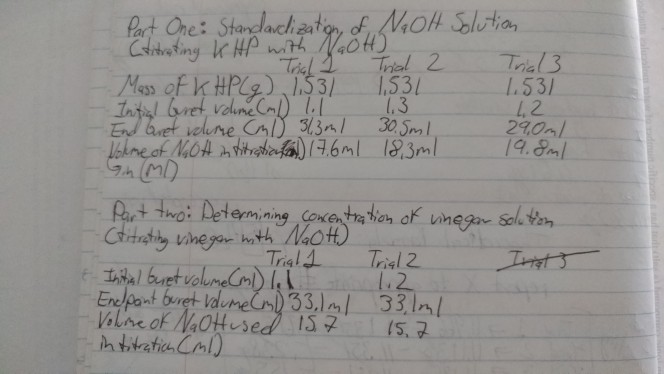 Part One: Standardization of NaOH Solution
(titrating KHP with NaOH)
Trial 1 Trial 2 Trial 3
Mass of KHP(g) 1.531 1.531 1.531
Initial buret volume (ml) 1.1 1.3 1.2
End buret volume (ml) 31.3ml 30.5ml 29.0ml
Volume of NaOH in titration 17.6ml 18.3ml 19.8ml
in (ml)
Part two: Determining concentration of vinegar solution
(titrating vinegar with NaOH)
Trial 1 Trial 2 Trial 3
Initial buret volume (ml) 1.1 1.2
Endpoint buret volume (ml) 33.1ml 33.1ml
Volume of NaOH used 15.7 15.7
in titration (ml)